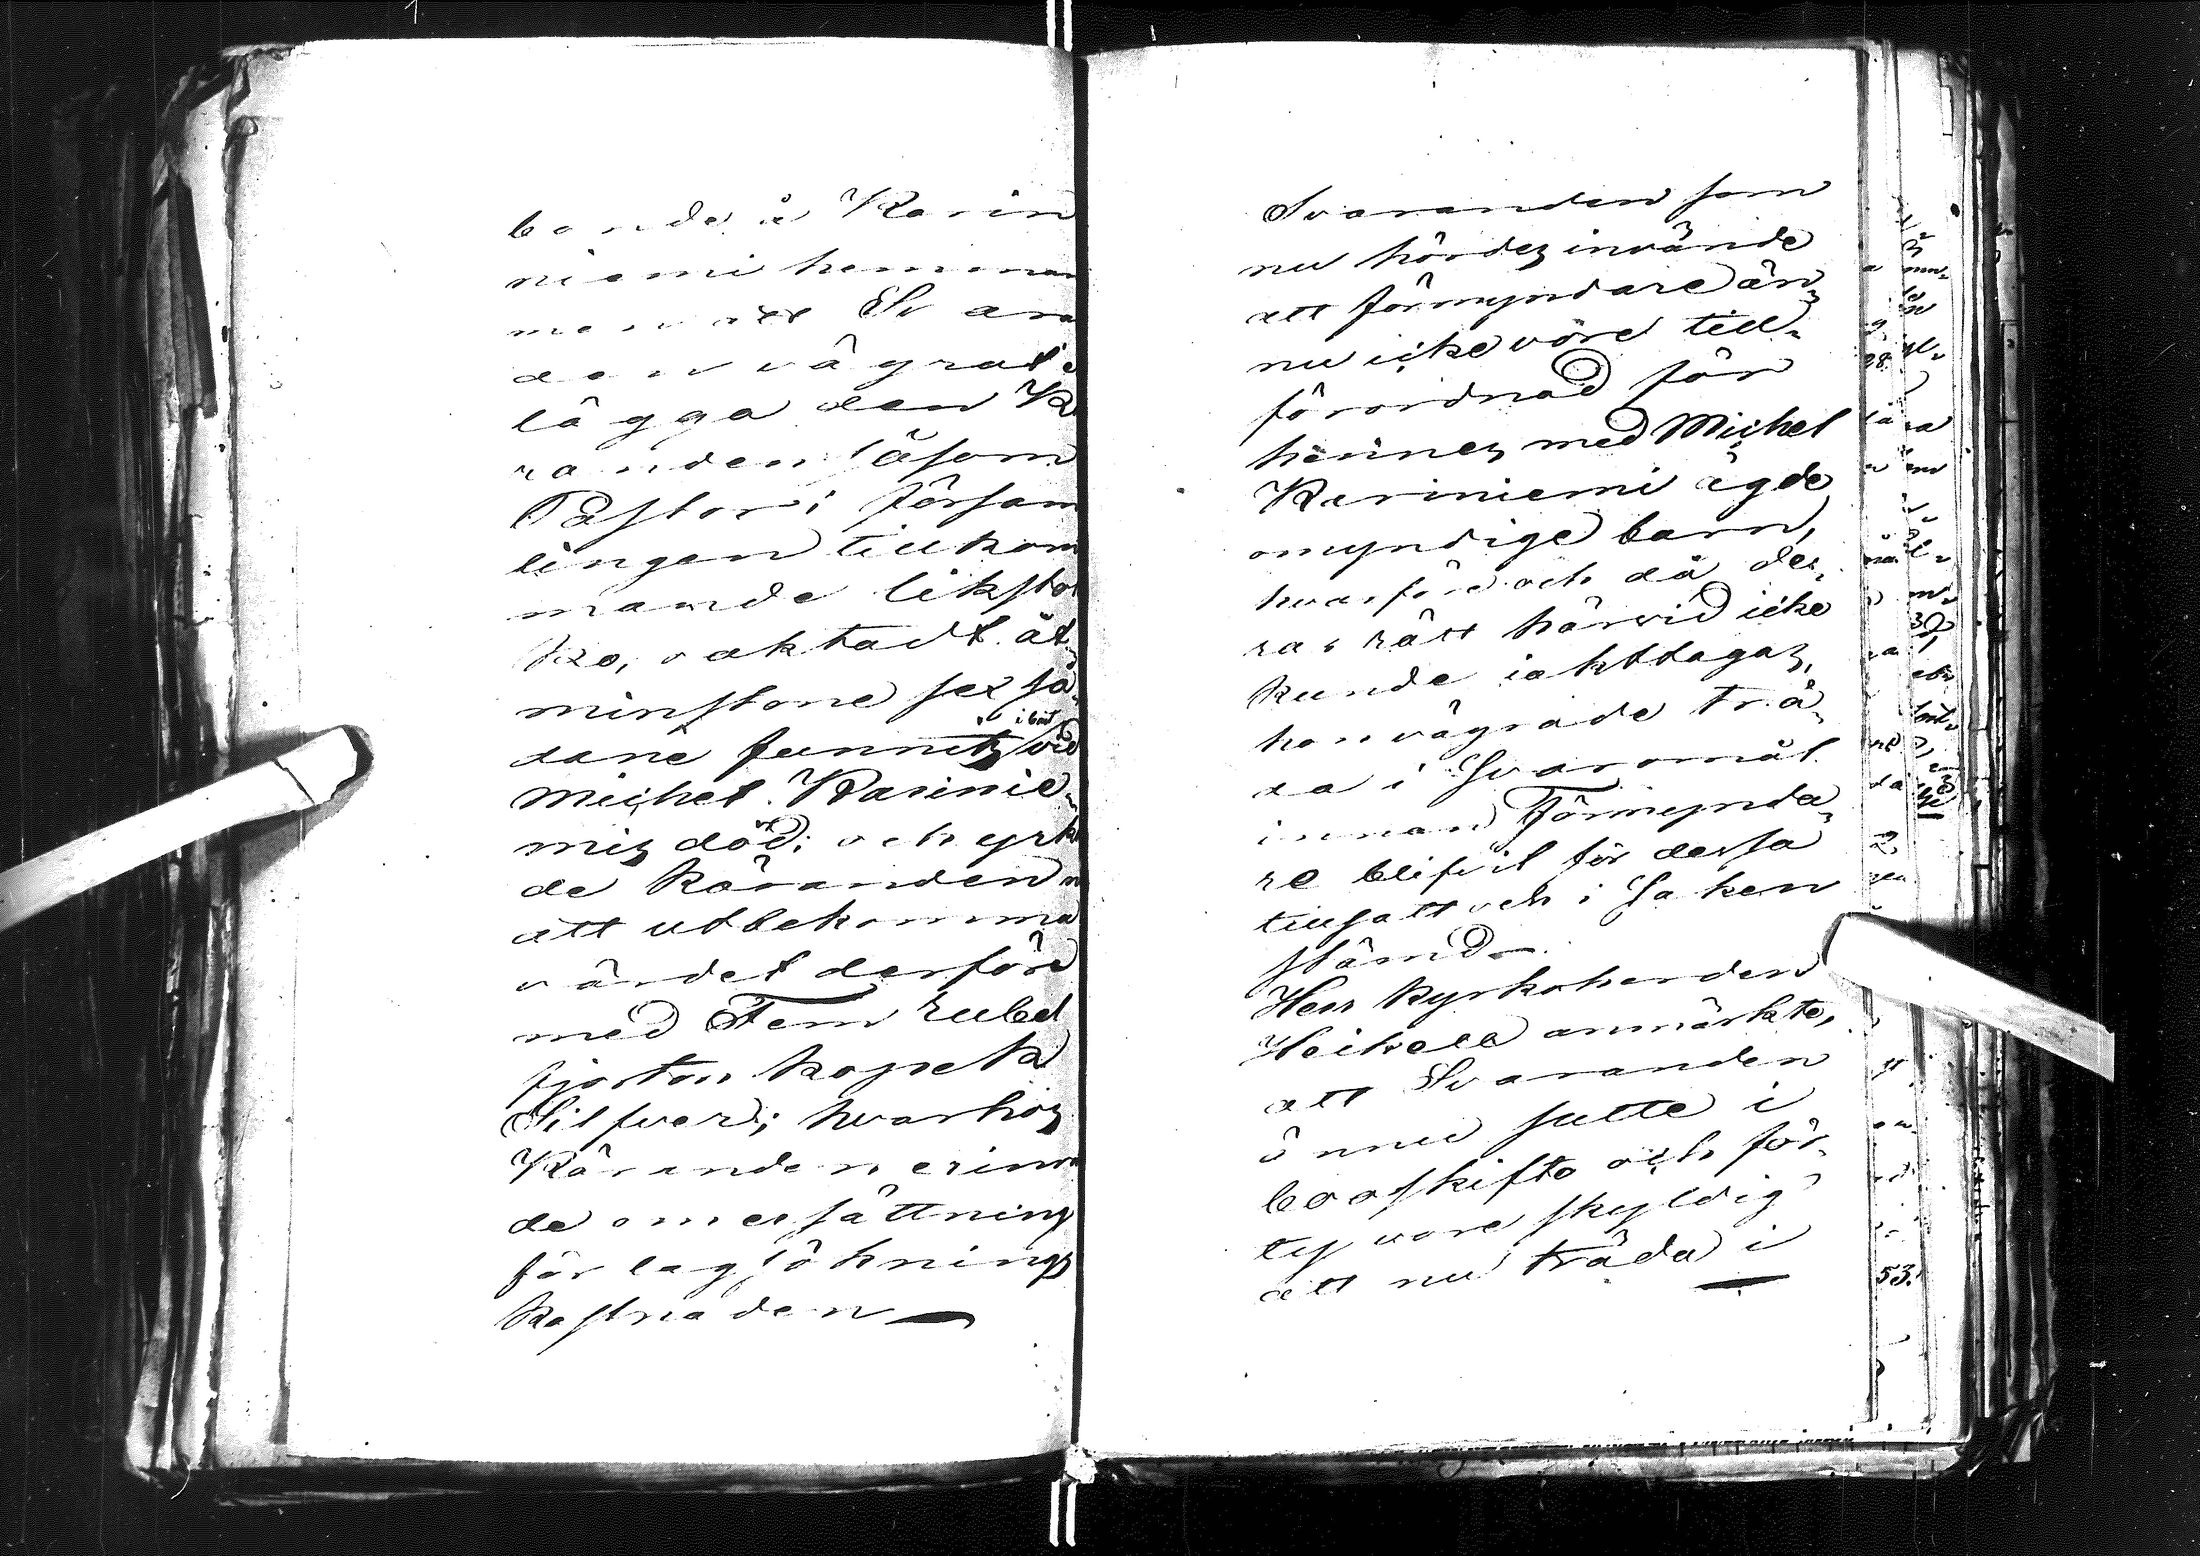 bonde å Karin
niemi hemman
men att Svara
den vägrat e
lägga den Kä
randen såsom
Pastor i försam
lingen tillkom
mande liksto
ko, vaktadt åt¬
minstone sex så¬
dane funnits i bo't vid
Michel Karinie¬
mis död; och yrka
de Käranden n
att utbekomma
värdet derföre
med Fem rubel
fjorton kopek
Silfver; hvarhos
Käranden erinra
de om ersättning
för lagsöknings
kostnaden
Svaranden som
nu hördes invände
att förmyndare än¬
nu icke vore till¬
förordnad för
hennes med Michel
Kariniemi ägde
omyndige barn,
hvarföre och då de¬
ras rätt härvid icke
kunde iakttagas,
hon vägrade trä¬
da i Svaromål
innan Förmynda¬
re blifvit för dessa
tillsatt och i Saken
stämd.
Herr Kyrkoherden
Heikell anmärkte,
att Svaranden
ännu sutte i
boo skifto och för¬
ty vore skyldig
att nu träda i
53.